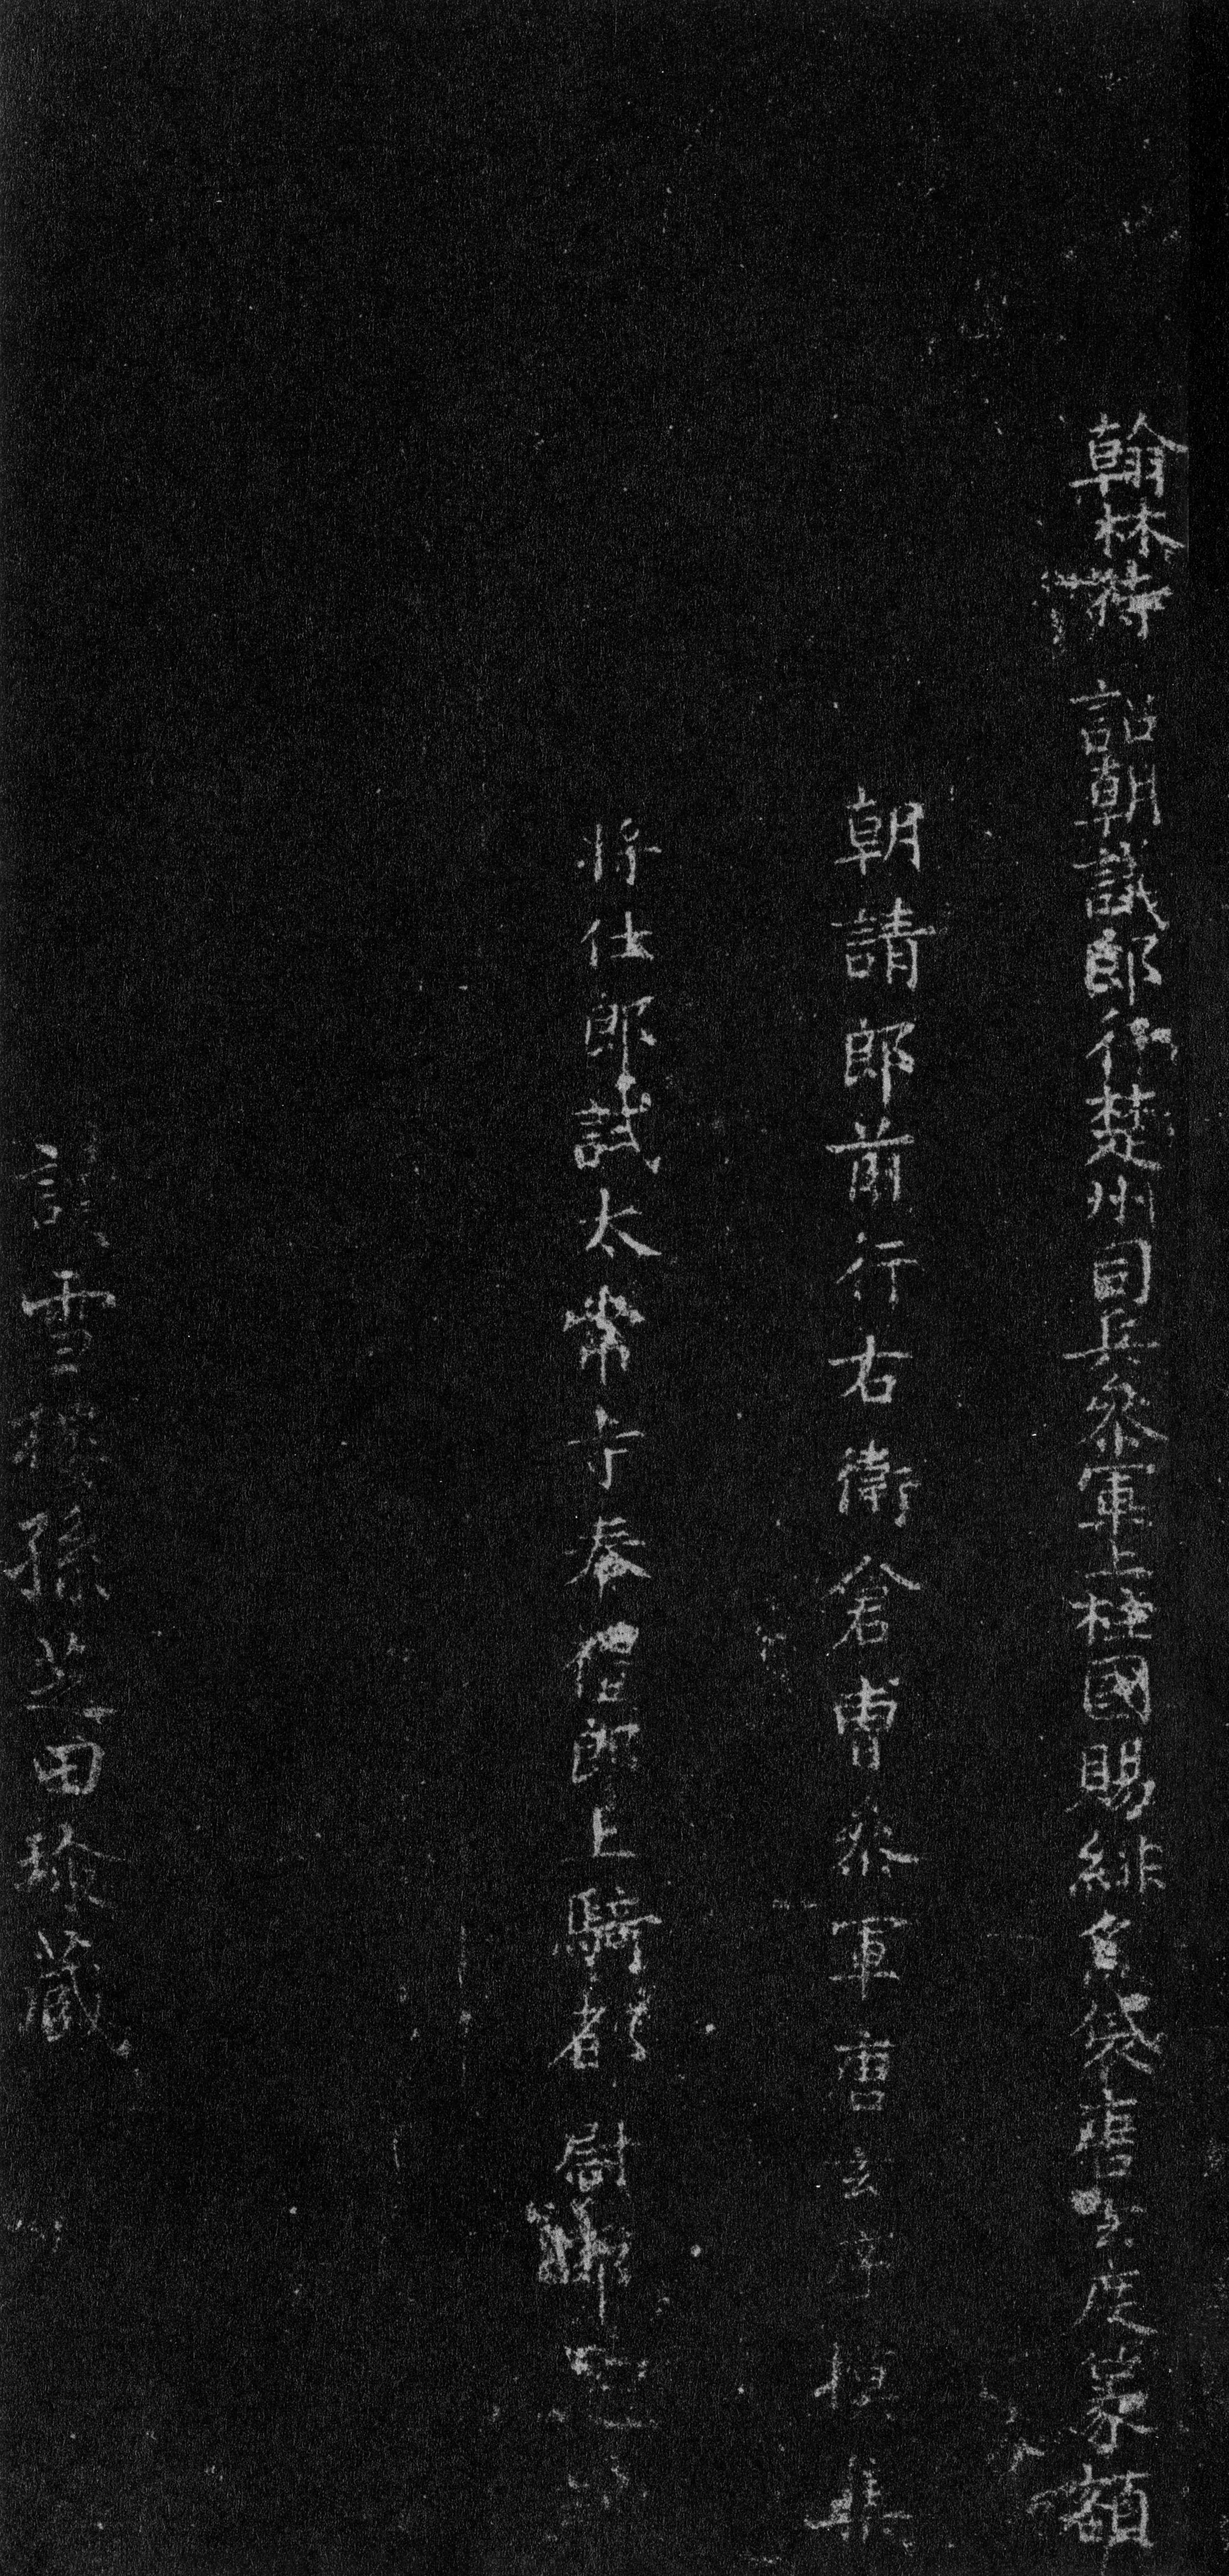 翰林待詔朝議郎行楚州司兵參軍上柱國賜緋魚袋唐玄度篆額
朝請郎前行右衛倉曹參軍唐玄序集
將仕郎試太常寺奉禮郎上騎都尉邵
雪樵孫芝田珍藏